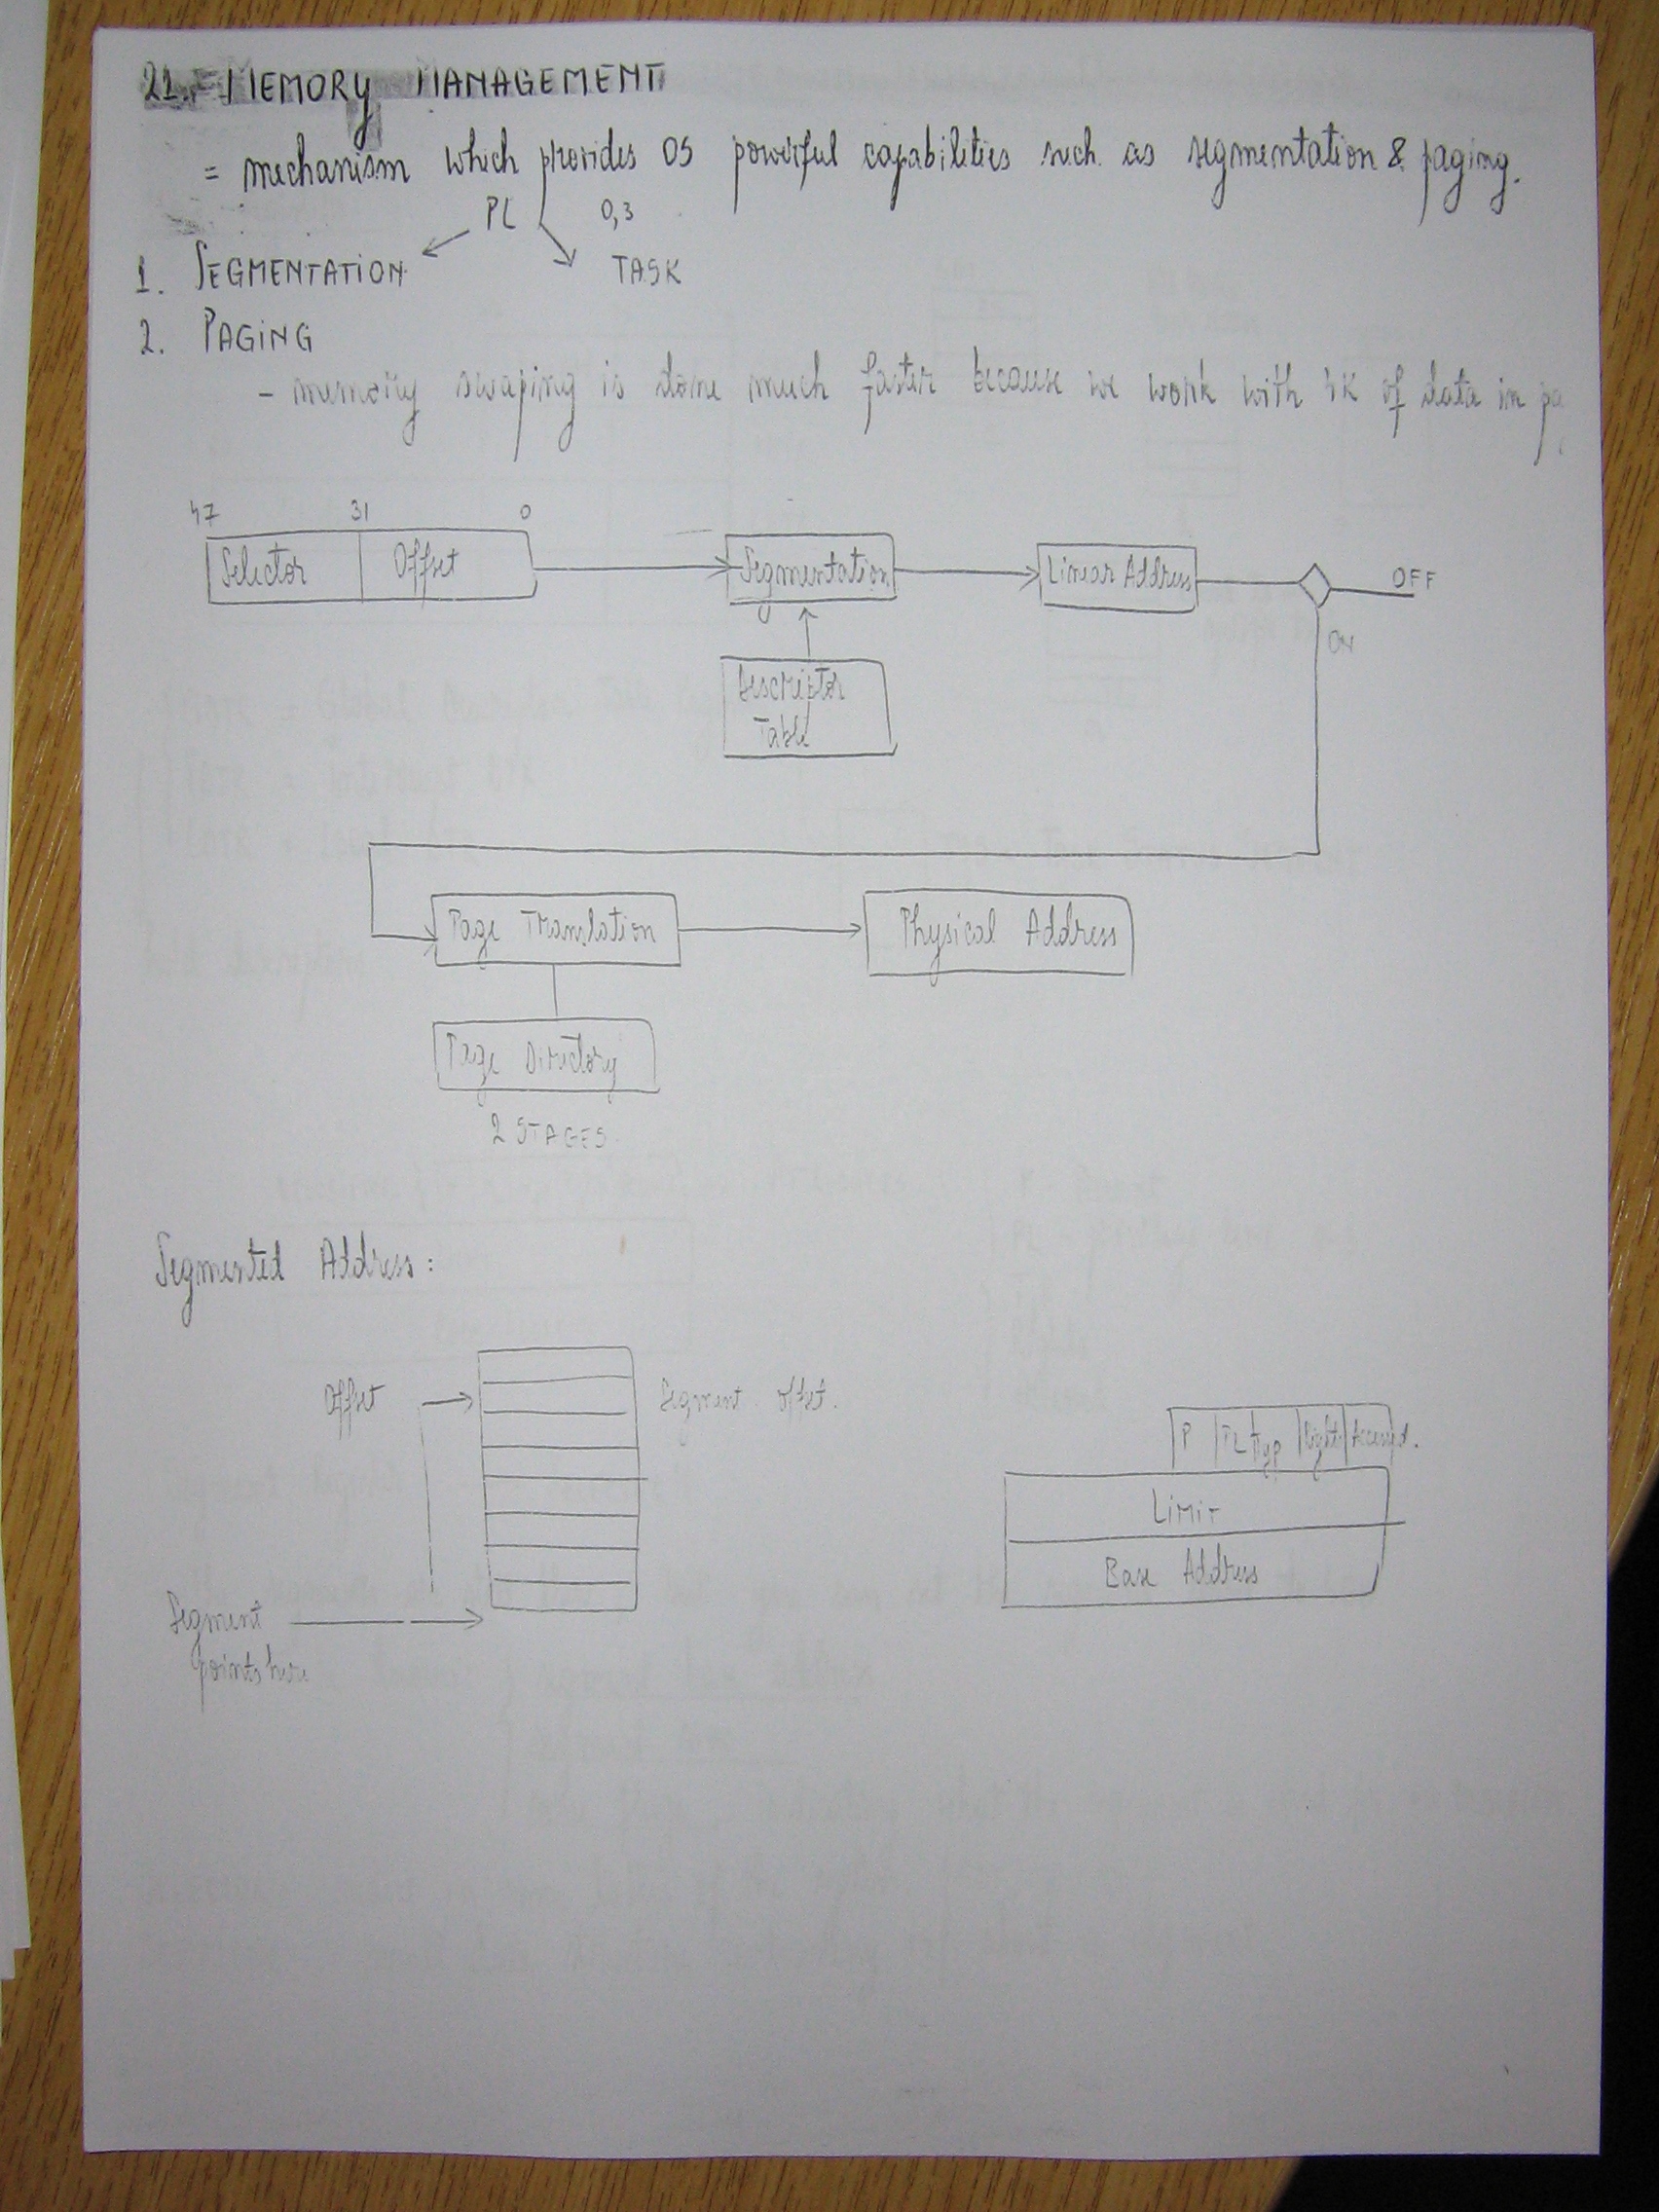 21. MEMORY MANAGEMENT
= mechanism which provides OS powerful capabilities such as segmentation & paging.
PL 0,3
1. SEGMENTATION TASK
2. PAGING
- memory swaping is done much faster because we work with 4K of data in pa
47 31 0
Selector Offset Segmentation Linear Address OFF
ON
Descriptor
Table
Page Translation Physical Address
Page Directory
2 STAGES
Segmented Address:
Offset Segment offset.
P PL Typ Right Accessed.
Limit
Base Address
Segment
points here